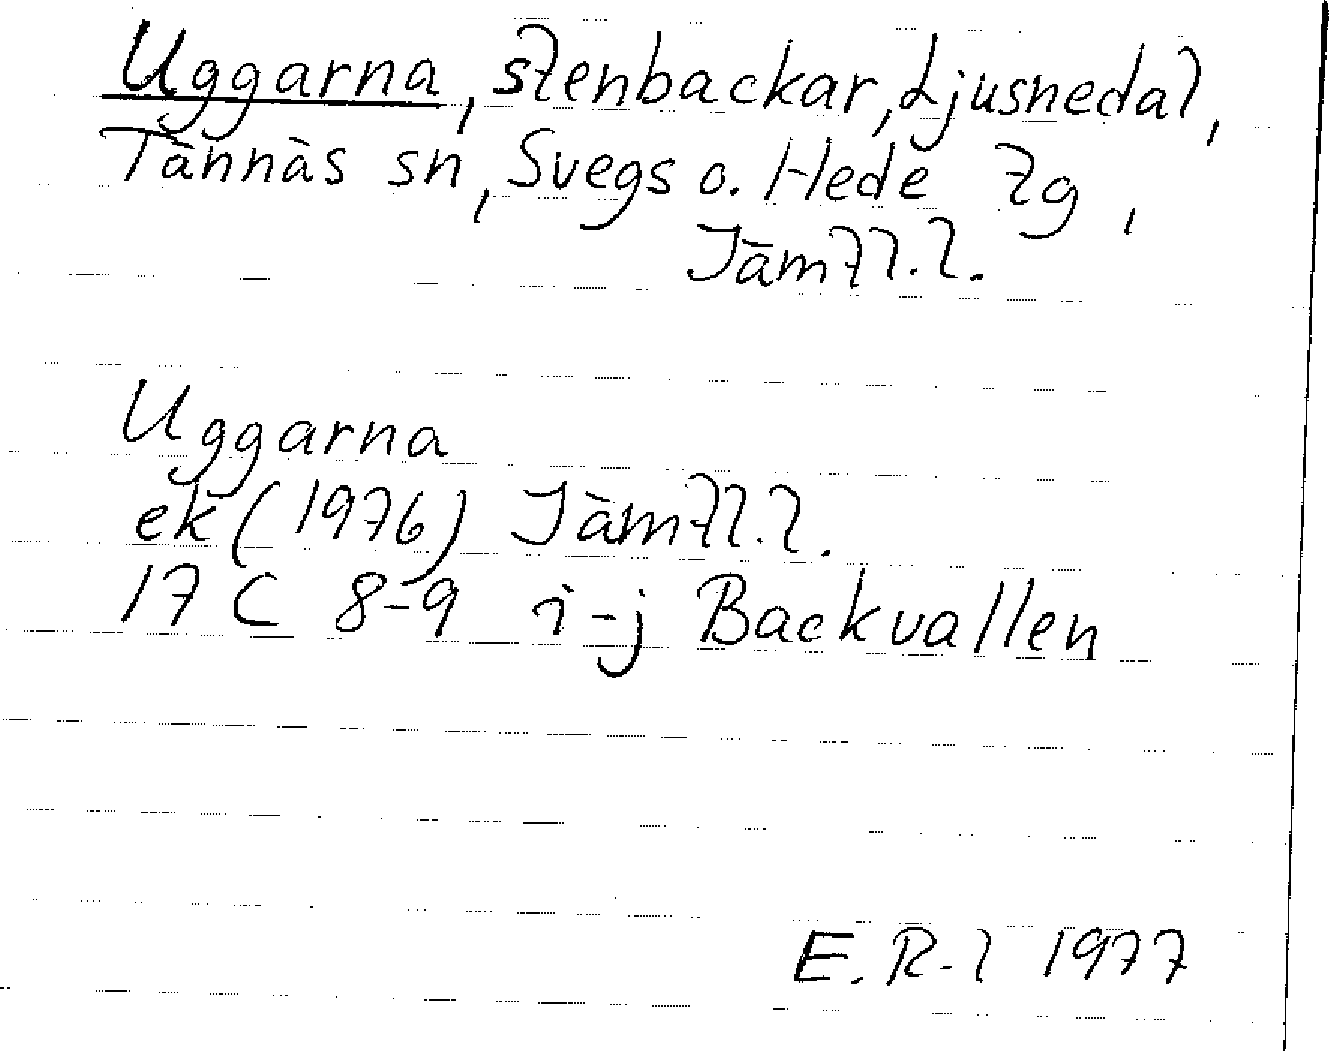 Uggarna, stenbackar, Ljusnedal,
Tännäs sn, Svegs o. Hede tg,
Jämtl.l.
Uggarna
ek (1976) Jämtl.l.
17 C 8-9 i-j Backvallen
E. R-l 1977